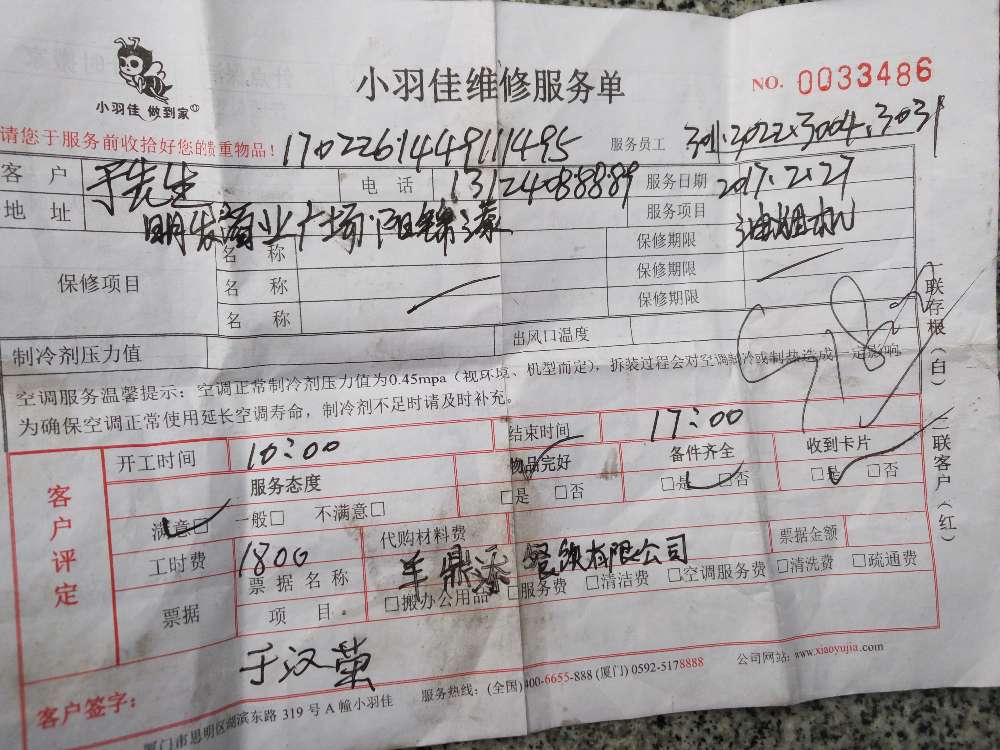 小羽佳维修服务单
NO. 0033486
小羽佳 做到家
请您于服务前收拾好您的贵重物品！ 170226144911495 服务员工 2022.3004.3031
客户 于先生 电话 13124088889 服务日期 2017.2.27
地址 明发商业广场 服务项目 油烟机
保修项目 名称 保修期限
名称 保修期限
名称 保修期限
制冷剂压力值 出风口温度
空调服务温馨提示：空调正常制冷剂压力值为0.45mpa（视环境、机型而定），拆装过程会对空调制冷或制热造成一定影响，
为确保空调正常使用延长空调寿命，制冷剂不足时请及时补充。
一联存根（白） 二联客户（红）
客户评定
开工时间 10:00 结束时间 17:00
服务态度 物品完好 备件齐全 收到卡片
满意□ 一般□ 不满意□ □是 □否 □是 □否 □是 □否
工时费 1800 代购材料费 票据金额
票据 票据名称 餐饮有限公司
项目 □搬办公用品 □服务费 □清洁费 □空调服务费 □清洗费 □疏通费
客户签字： 于汉萤
厦门市思明区湖滨东路 319 号 A 幢小羽佳 服务热线：(全国)400-6655-888 (厦门) 0592-5178888 公司网站：www.xiaoyujia.com